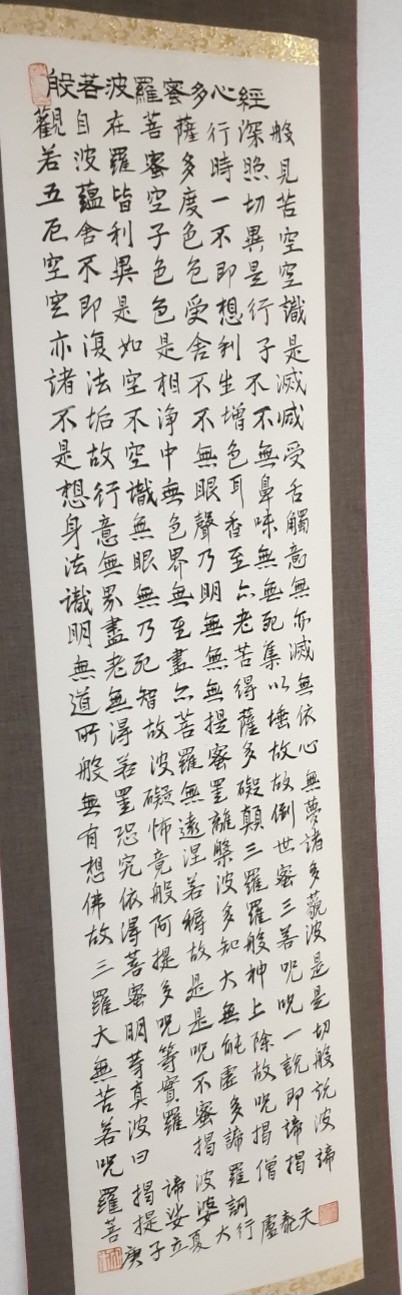 般若波羅蜜多心經
觀自在菩薩行深般
若波羅蜜多時照見
五蘊皆空度一切苦
厄舍利子色不異空
空不異色色即是空
空即是色受想行識
亦復如是舍利子是
諸法空相不生不滅
不垢不淨不增不減
是故空中無色無受
想行識無眼耳鼻舌
身意無色聲香味觸
法無眼界乃至無意
識界無無明亦無無
明盡乃至無老死亦
無老死盡無苦集滅
道無智亦無得以無
所得故菩提薩埵依
般若波羅蜜多故心
無罣礙無罣礙故無
有恐怖遠離顛倒夢
想究竟涅槃三世諸
佛依般若波羅蜜多
故得阿耨多羅三藐
三菩提故知般若波
羅蜜多是大神呪是
大明呪是無上呪是
無等等呪能除一切
苦真實不虛故說般
若波羅蜜多呪即說
呪曰揭諦揭諦波
羅揭諦波羅僧揭諦
菩提娑婆訶
庚子立夏大行